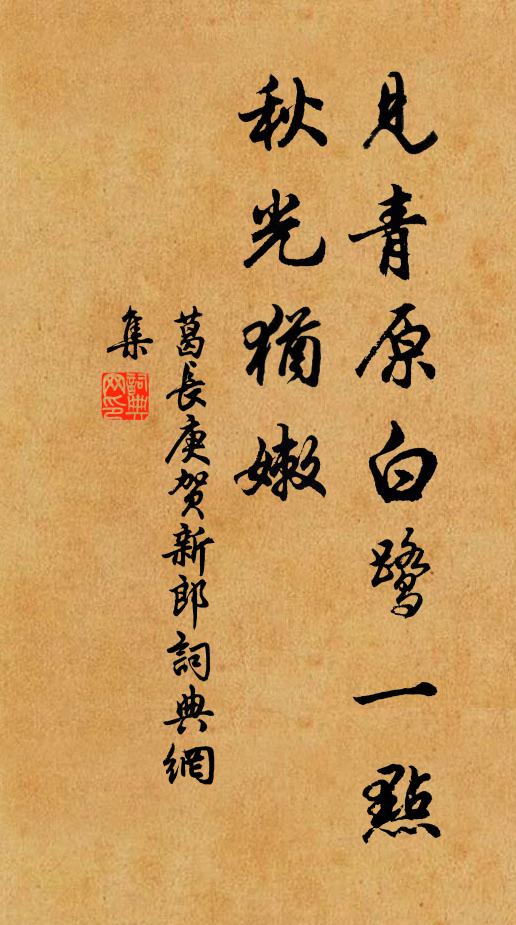 見青原白鷺一點
秋光猶嫩
葛長庚賀新郎詞典網
集
詞典
网印